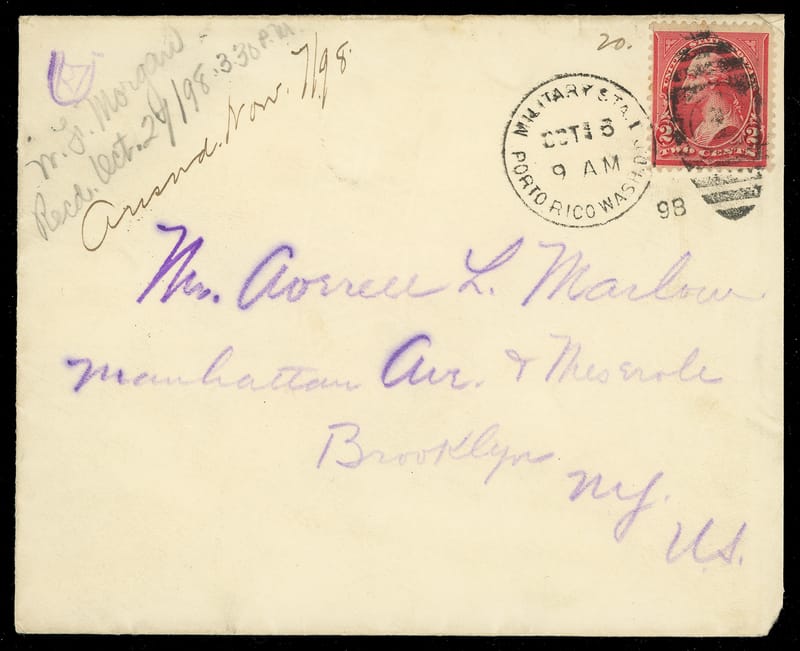 W. G. Morgan
Recd. Oct. 29/98. 3.30 P.M.
Answd. Nov. 7/98.
20.
MILITARY STA. 1
OCT 16
9 AM
PORTO RICO WASH. D.C.
98
UNITED STATES POSTAGE
2 2
TWO CENTS
Mr. Averell L. Marlow
Manhattan Ave. & Meserole
Brooklyn
N.Y.
U.S.